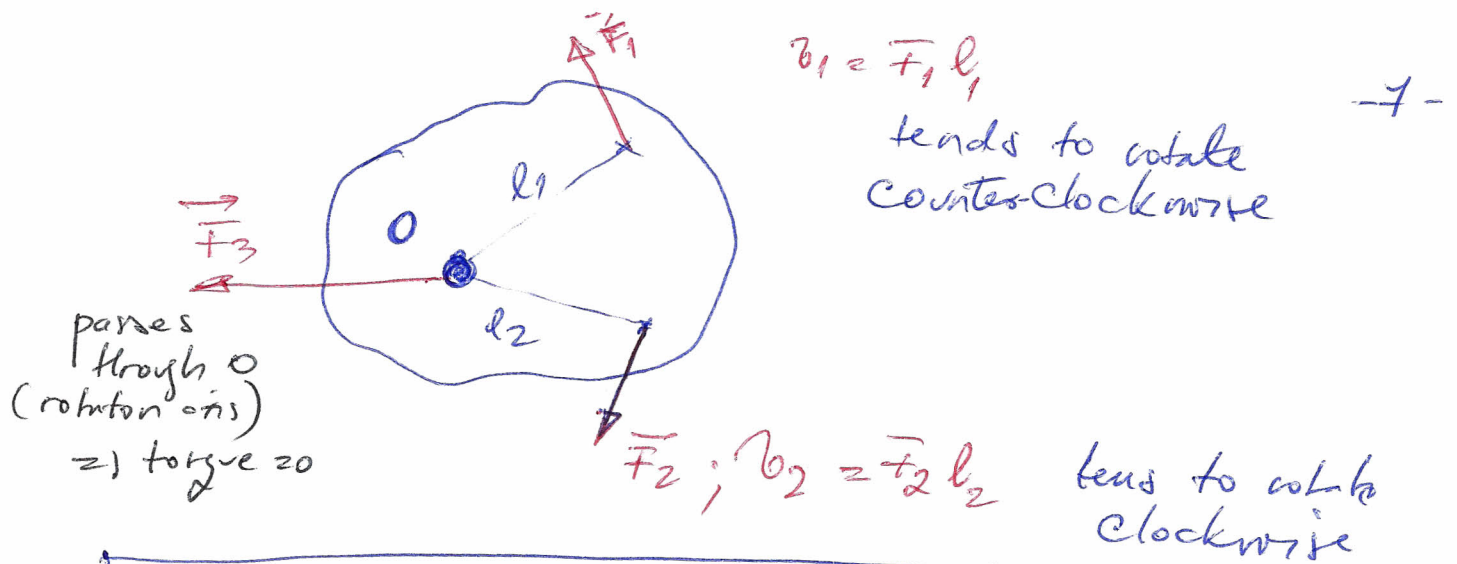 F₁
τ₁ = F₁ l₁
-7-
tends to rotate
counter-clockwise
l1
O
F₃
l2
passes
through O
(rotation axis)
=) torque = 0
F₂ ; τ₂ = F₂ l₂
tens to rotate
clockwise